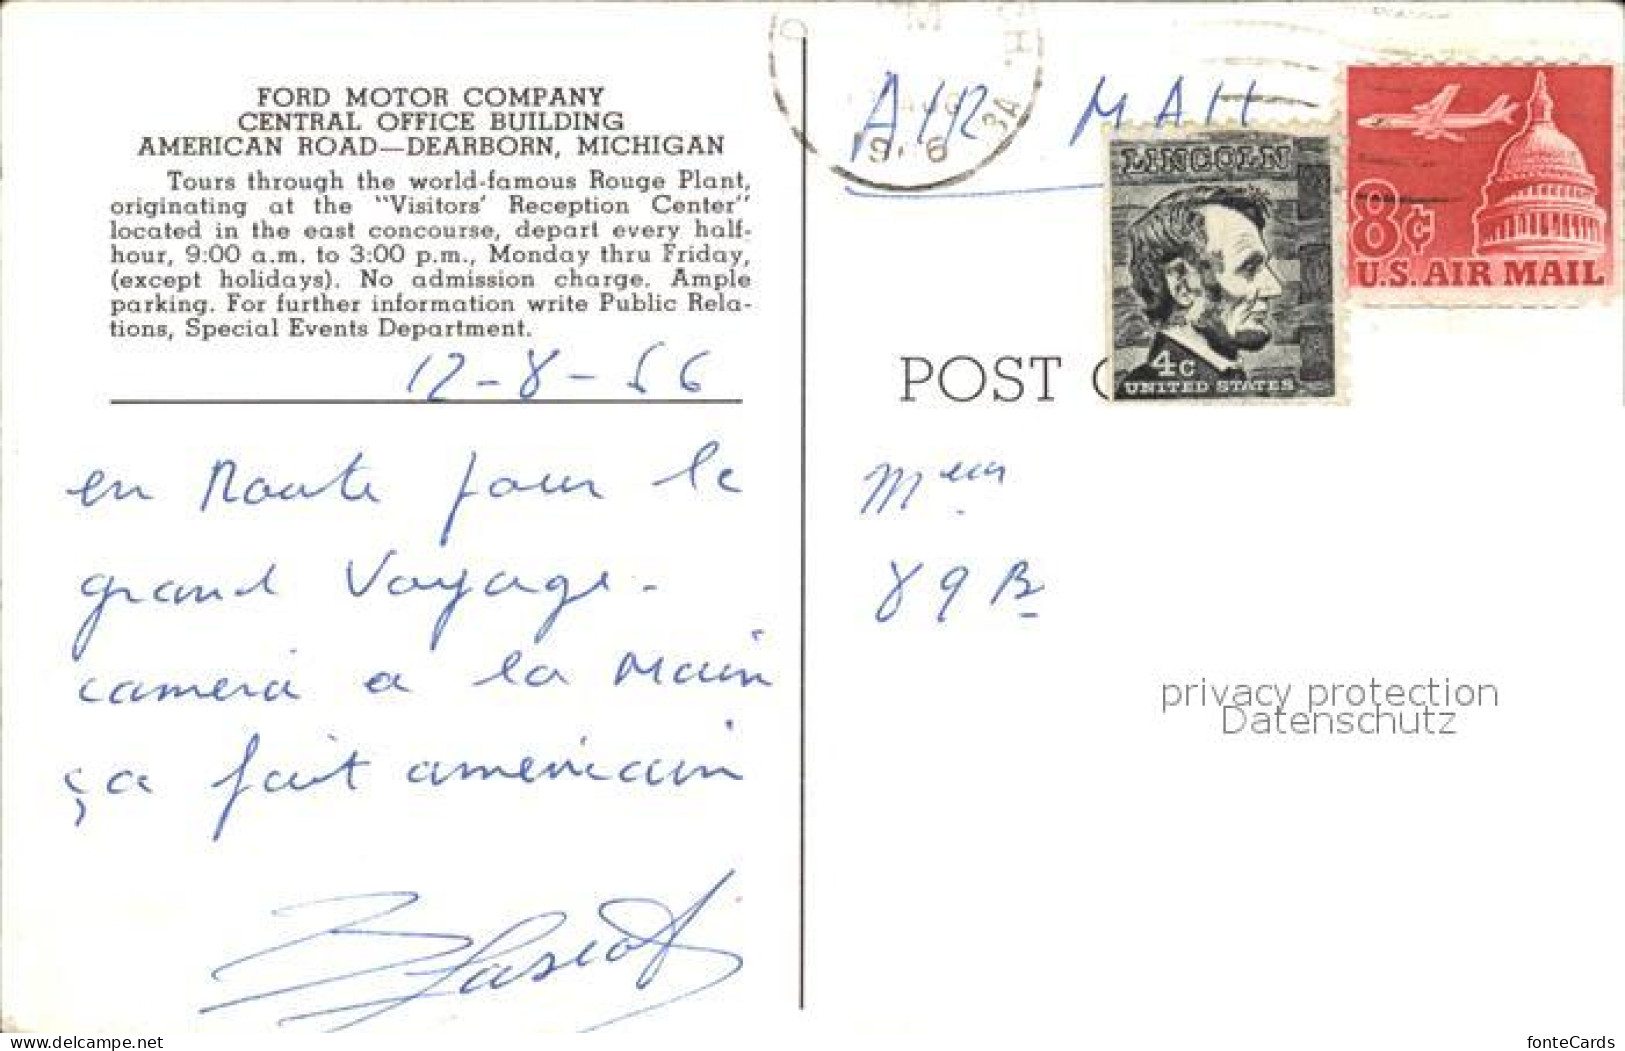 FORD MOTOR COMPANY
CENTRAL OFFICE BUILDING
AMERICAN ROAD—DEARBORN, MICHIGAN
Tours through the world-famous Rouge Plant,
originating at the "Visitors' Reception Center"
located in the east concourse, depart every half-
hour, 9:00 a.m. to 3:00 p.m., Monday thru Friday,
(except holidays). No admission charge. Ample
parking. For further information write Public Rela-
tions, Special Events Department.
12-8-66
en Route pour le
grand Voyage-
camera a la main
ça fait americain
AIR MAIL
LINCOLN
4c
UNITED STATES
8¢
U.S. AIR MAIL
POST
89 B
privacy protection
Datenschutz
www.delcampe.net
fonteCards